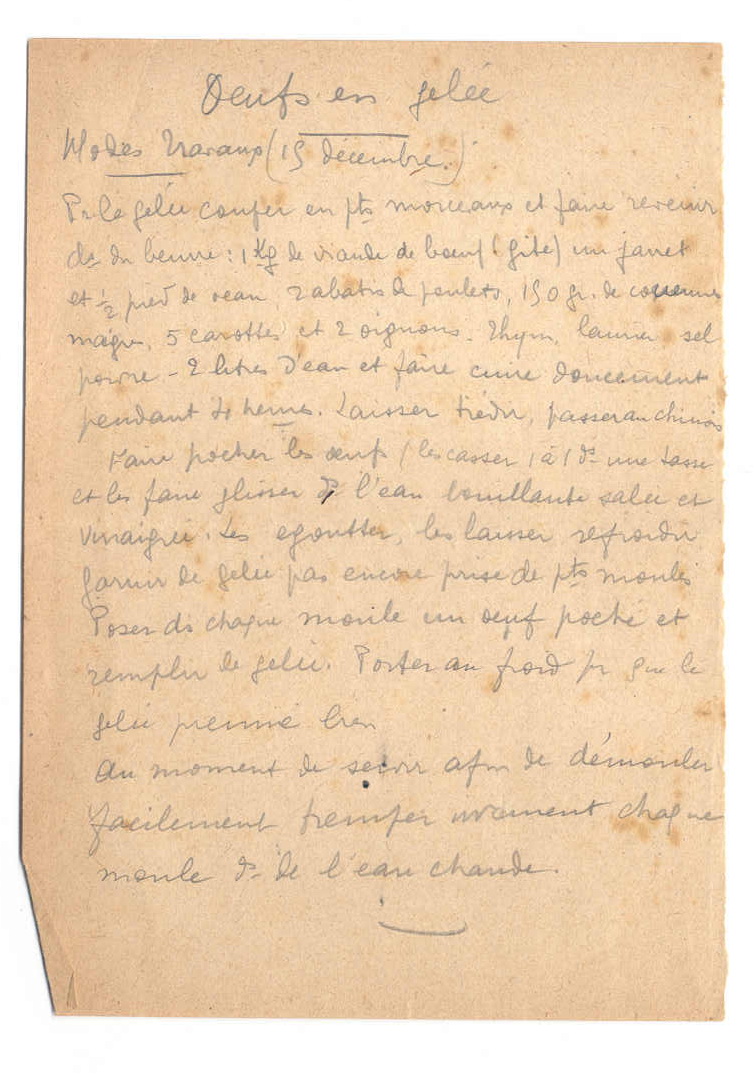 Oeufs en gelée
Modes Travaux (15 décembre.)
Pr la gelée couper en pts morceaux et faire revenir
ds du beurre : 1 Kg de viande de bœuf (gite) un jarret
et ½ pied de veau, 2 abatis de poulets, 150 gr. de couennes
maigres, 5 carottes et 2 oignons. Thym, laurier sel
poivre - 2 litres d'eau et faire cuire doucement
pendant 4 heures. Laisser tiédir, passer au chinois
Faire pocher les œufs (les casser 1 à 1 ds une tasse
et les faire glisser ds l'eau bouillante salée et
vinaigrée. Les egoutter, les laisser refroidir
garnir de gelée pas encore prise de pts moules
Poser ds chaque moule un oeuf poché et
remplir de gelée. Porter au froid pr que la
gelée prenne bien
Au moment de servir afin de démouler
facilement tremper vivement chaque
moule ds de l'eau chaude.